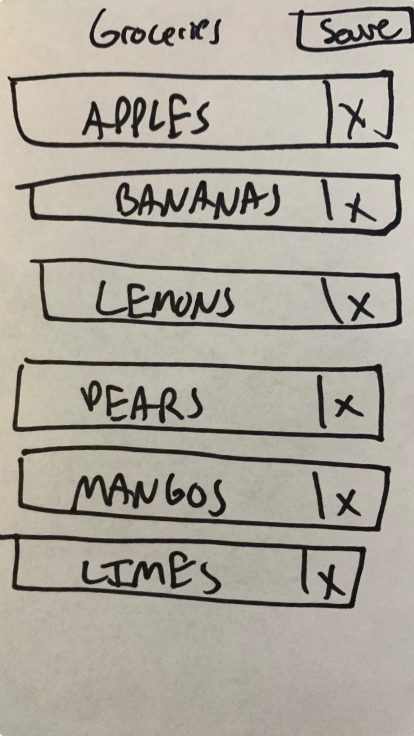 Groceries Save
APPLES X
BANANAS X
LEMONS X
PEARS X
MANGOS X
LIMES X